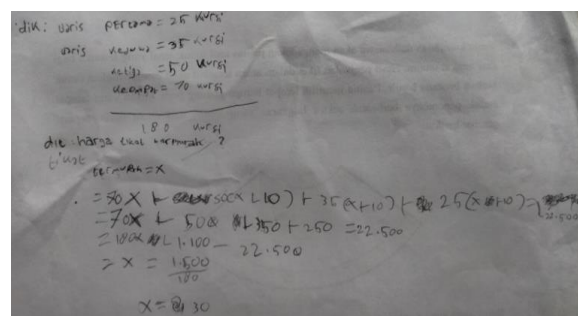 dik: baris pertama = 25 kursi
baris kedua = 35 kursi
ketiga = 50 kursi
keempat = 70 kursi
180 kursi
dit: harga tiket termurah ?
tiket
termurah = x
= 70x + 50(x+10) + 35(x+10) + 25(x+10) = 22.500
= 70x + 500 + 350 + 250 = 22.500
= 180x + 1.100 - 22.500
= x = 1.500
180
x = 30